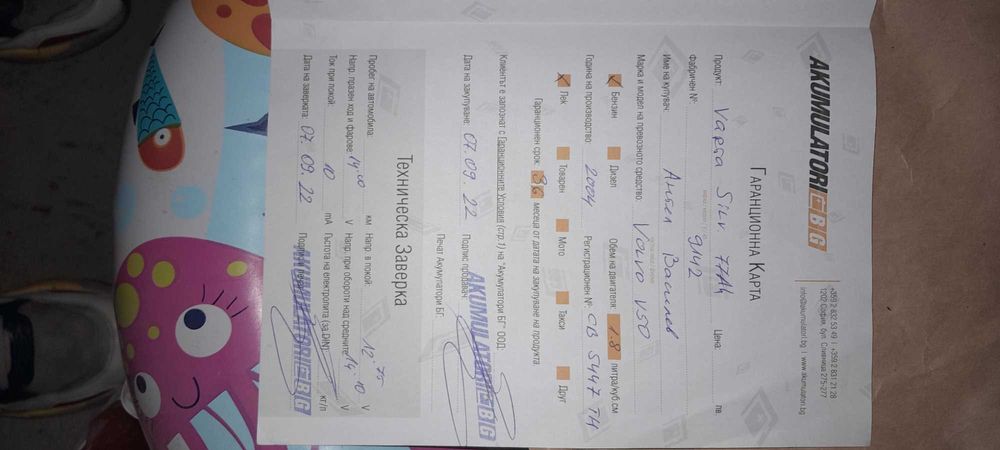 AKUMULATORI BG
+359 2 832 53 49 | +359 2 831 21 28
1202 София, бул. Сливница 275-277
info@akumulatori.bg | www.akumulatori.bg
ГАРАНЦИОННА КАРТА
Продукт: Varta Silv 77Ah Цена: лв.
Фабричен №: 9142
Име на купувач: Ангел Василев
Марка и модел на превозното средство: Volvo V50
Бензин Дизел Обем на двигателя: 1.8 литра/куб.см
Година на производство: 2004 Регистрационен №: СВ 5447 ТН
Лек Товарен Мото Такси Друг
Гаранционен срок: 36 месеци от датата на закупуване на продукта
Клиентът е запознат с Гаранционните Условия (стр.1) на "Акумулатори БГ" ООД:
Дата на закупуване: 07.09.22 Подпис продавач:
AKUMULATORI BG
Печат Акумулатори БГ:
Техническа Заверка
Пробег на автомобила: км Напр. в покой: 12.75 V
Напр. празен ход и фарове: 14.00 V Напр. при обороти над средните: 14.10 V
Ток при покой: 10 mA Гъстота на електролита (за DIN): кг/л
Дата на заверката: 07.09.22 Подпис
AKUMULATORI BG